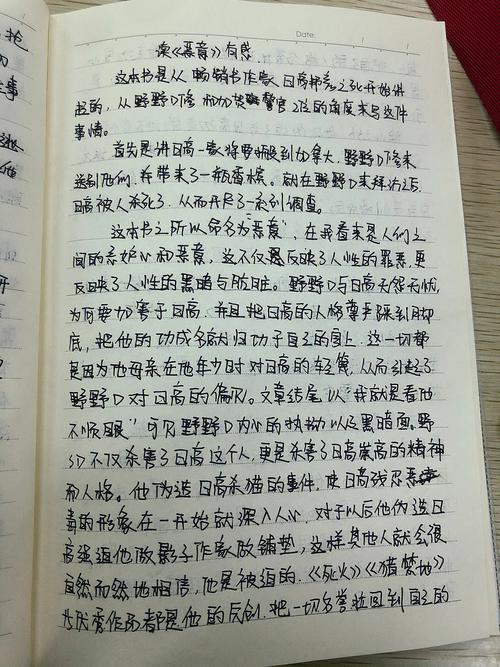 Date:
读《恶意》有感
这本书是从畅销书作家日高邦彦之死开始讲
起的，从野野口修和加贺警官2位的角度来写这件
事情。
首先是讲日高一家将要搬到加拿大，野野口修来
送别他们，并带来了一瓶香槟。就在野野口来拜访之后，
日高被人杀死了，从而开展了一系列调查。
这本书之所以命名为“恶意”，在我看来是人们之
间的嫉妒心和恶意，这不仅是反映了人性的罪恶，更
反映了人性的黑暗与肮脏。野野口与日高无怨无仇，
为何要加害于日高，并且把日高的人格尊严踩到脚
底，把他的功成名就归功于自己的身上，这一切都
是因为他母亲在他年少时对日高的轻蔑，从而引起了
野野口对日高的偏见。文章结尾以“我就是看他
不顺眼”可见野野口内心的执拗以及黑暗面。野
野口不仅杀害了日高这个人，更是杀害了日高崇高的精神
和人格。他伪造日高杀猫的事件，使日高残忍
毒的形象在一开始就深入人心，对于以后他伪造日
高强逼他做影子作家做铺垫，这样其他人就会很
自然而然地相信，他是被逼的，《死火》《猎禁地》
等优秀作品都是他的原创，把一切名誉拉回到自己的
抢
事
他